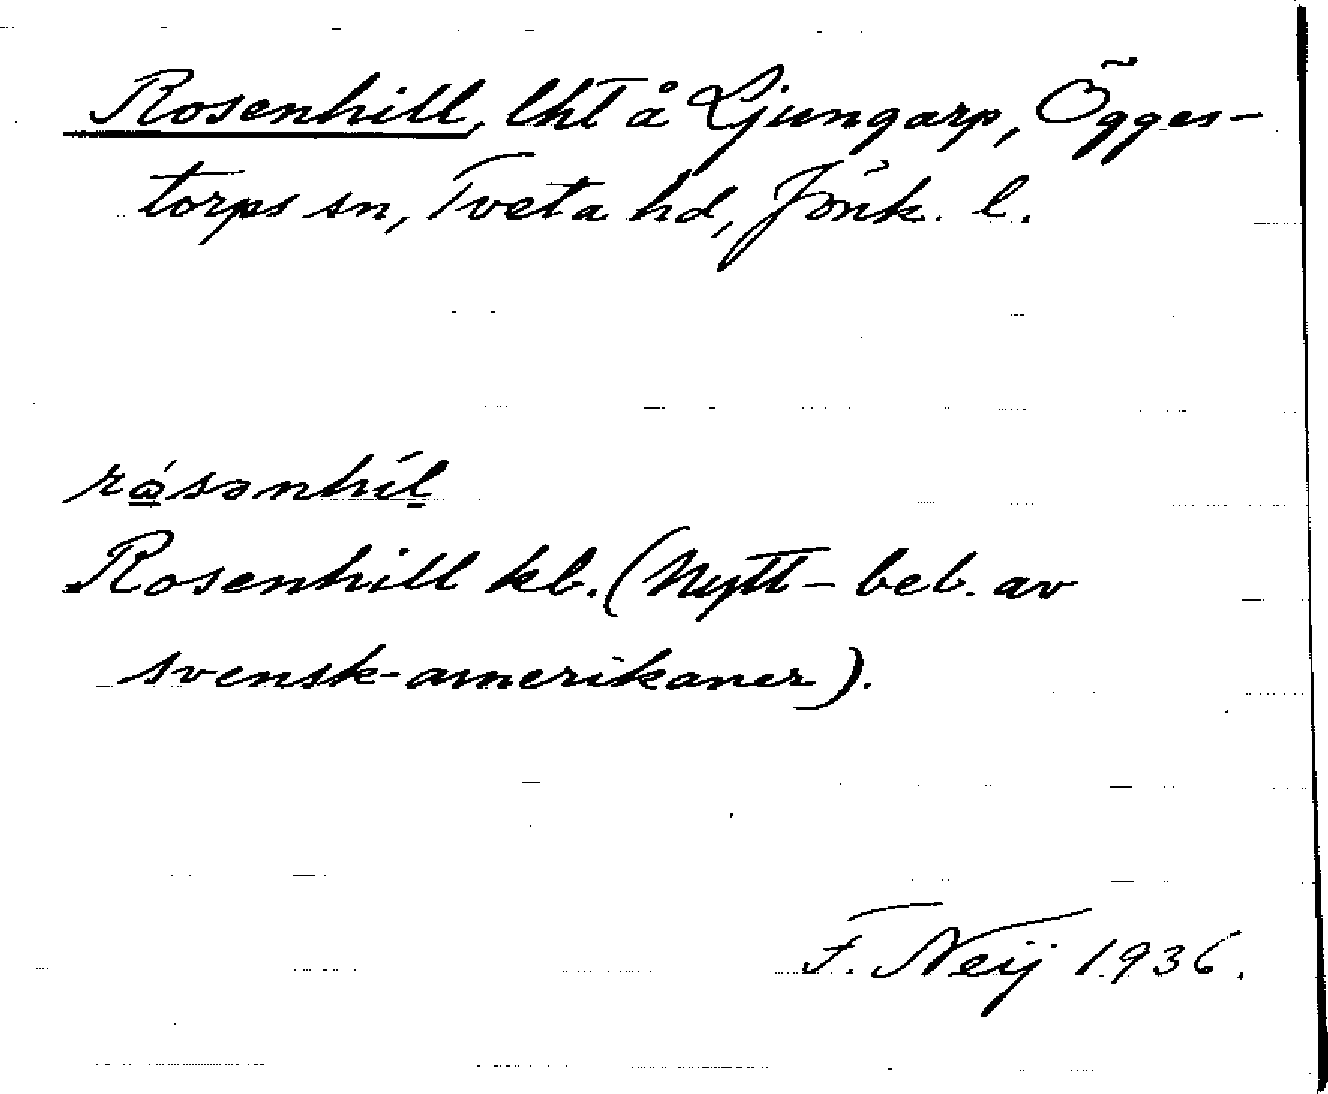 Rosenhill, lht å Ljungarp, Ögges-
torps sn, Tveta hd, Jönk. l.
rósənhíl
Rosenhill kb. (Nytt - beb. av
svensk-amerikaner).
F. Neij 1936.